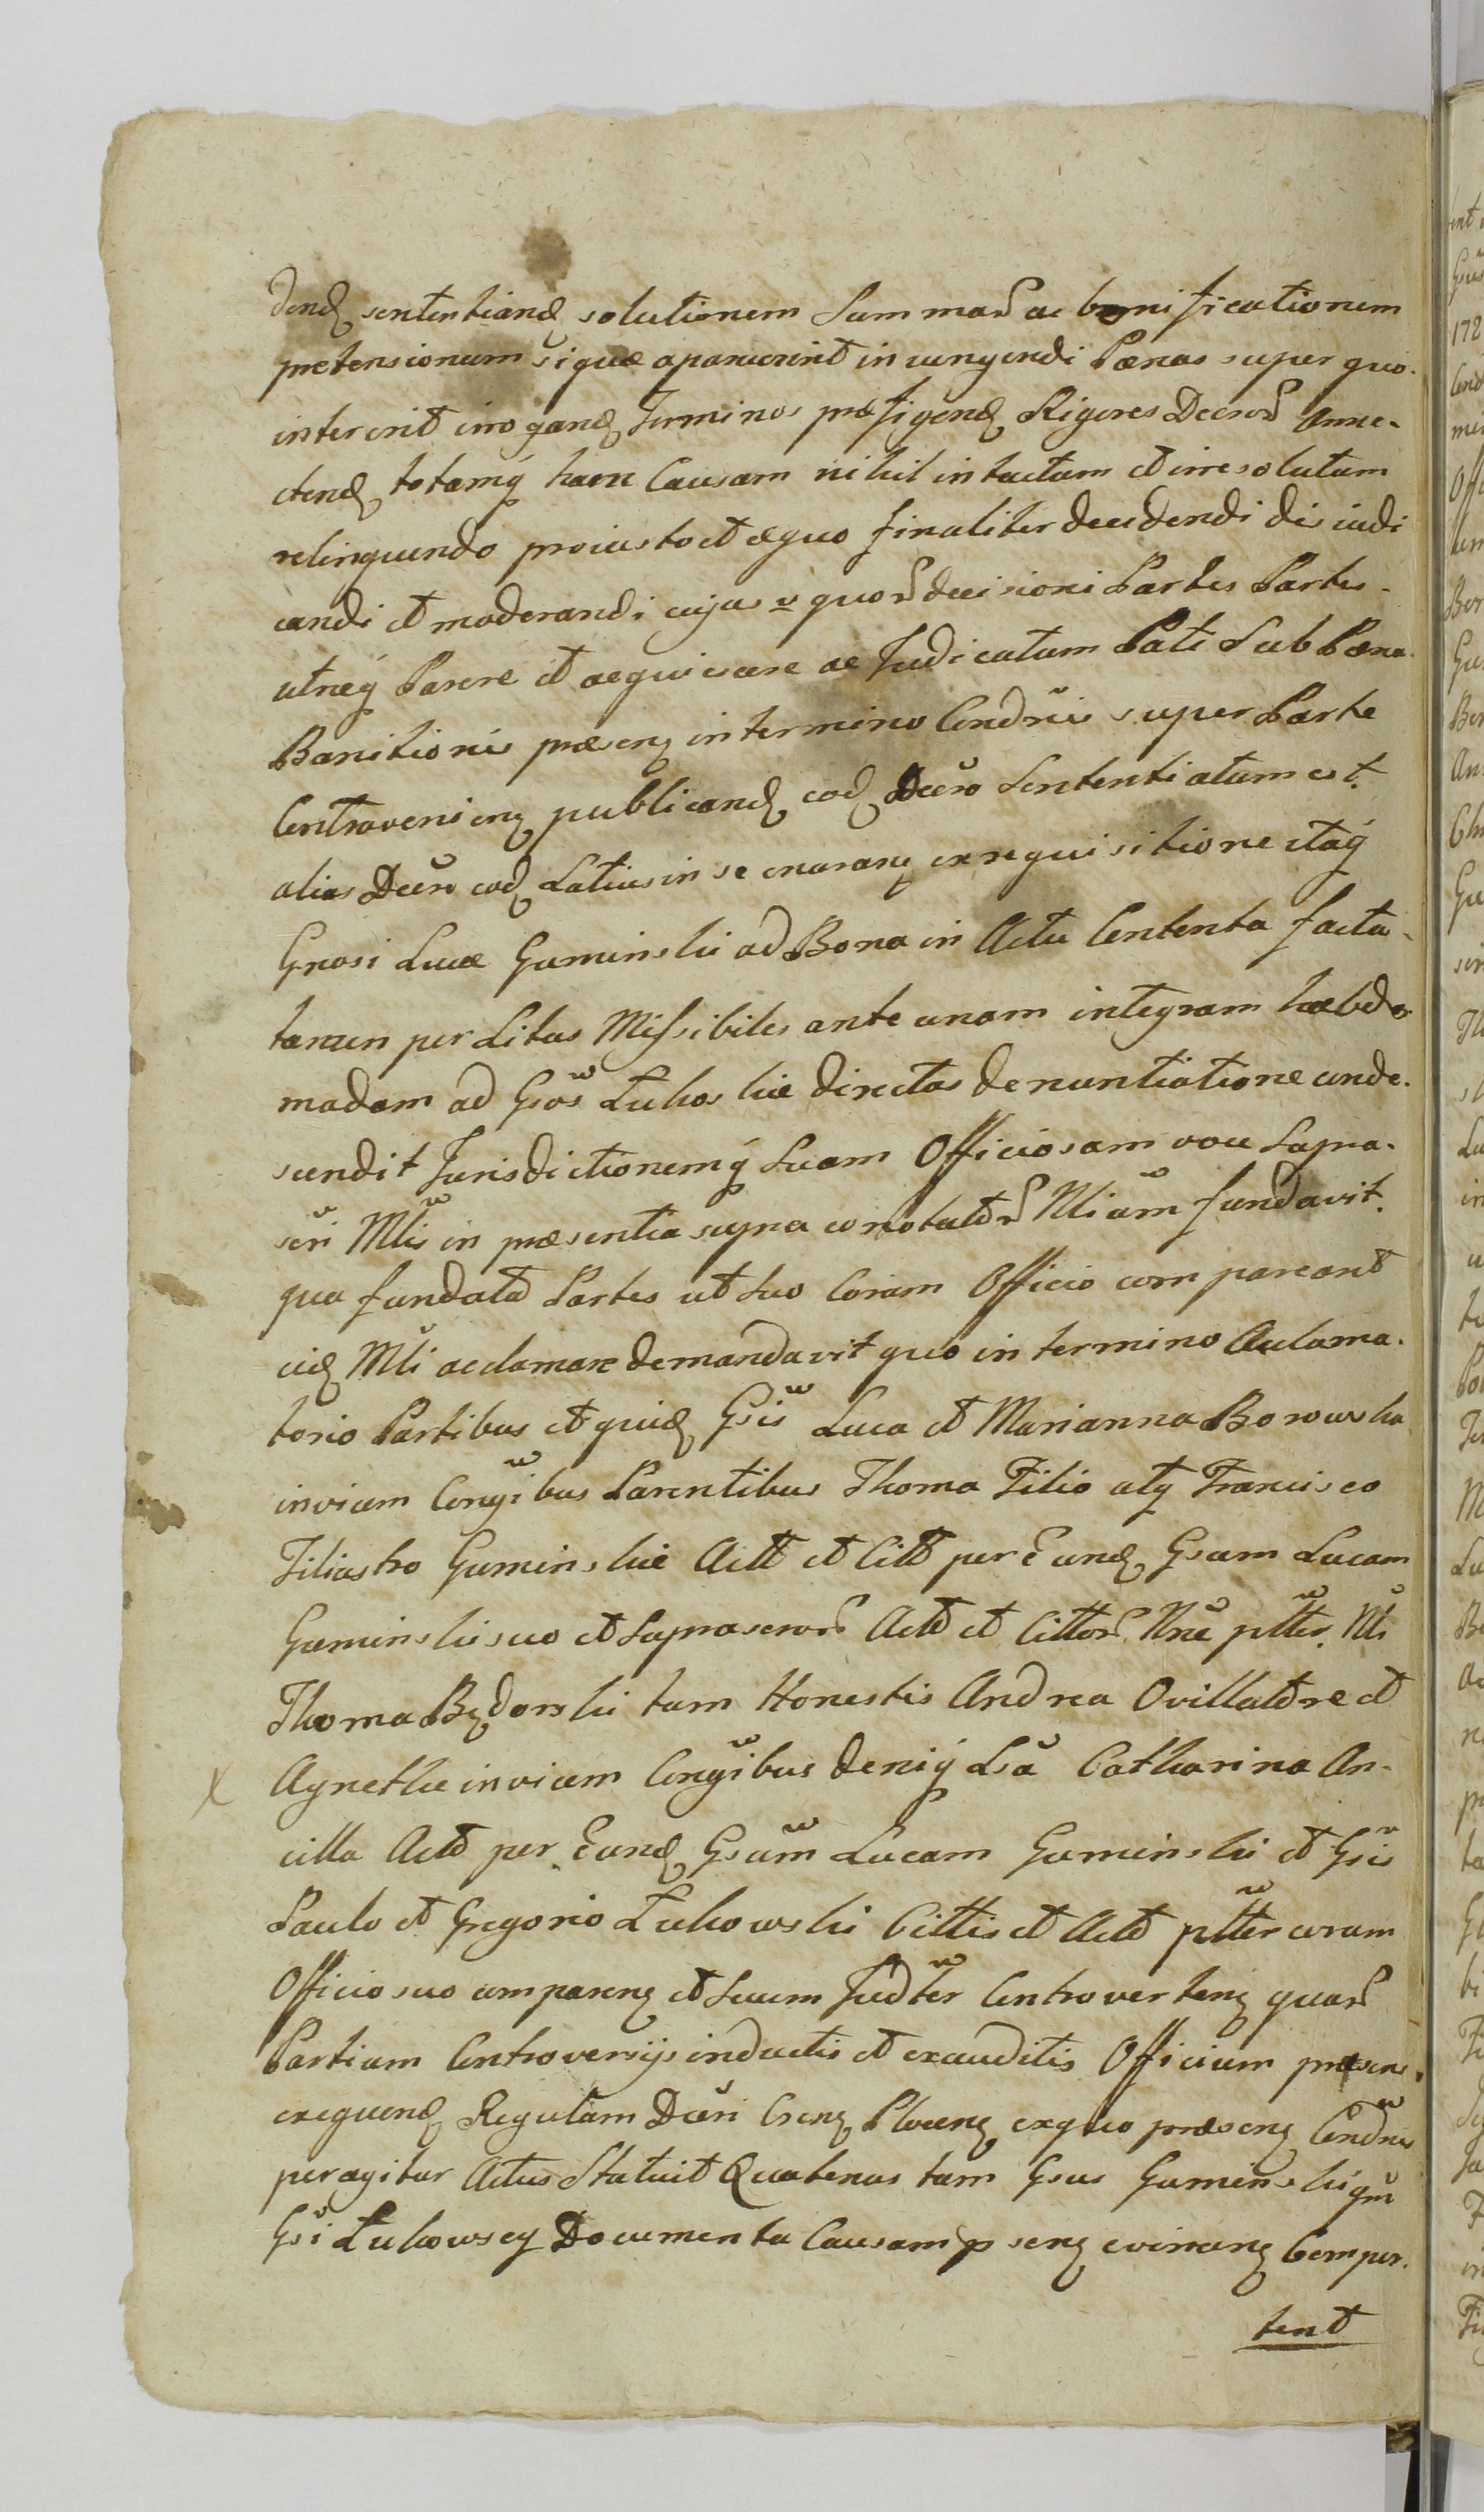 dend sententiand solutionem Summar ac bonificationem
pretensionum si quæ aparuerint in iungendi Pænas super quo
intererit irrogand Terminos præfigend Rigores Decror Anne-
ctend totamq hanc Causam nihil intactum et irresolutum
relinquendo pro iusto et æquo finaliter decidendi diiudi
candi et moderandi cujus v quor decisioni Partes Partes
utræq Parere et acquiescere ac Judicatum Pati Sub Pæna
Banitionis præsen in termino Condnis super Parte
Contravenien publicand eod Decro Sententiatum est
alias Decro eod Latius in se enaran ex requisitione itaq
Grosi Lucæ Guminski ad Bona in Actu Contenta facta
tamen per Litas Missibiles ante unam integram hæbdo
madam ad Gsos Łukoskie directas denuntiatione conde
scendit Jurisdictionemq Suam Officiosam voce Supra
scri Mlis in præsentia supra conotator Nlium fundavit
qua fundata Partes ut Suo Coram Officio compareant
eid Mli acclamare demandavit quo in termino Aclama
torio Partibus et quid Gsis Luca et Marianna Borowska
invicem Congibus Parentibus Thoma Filio atq Francisco
Filiastro Guminskie Actt et Citt per Eund Gsum Lucam
Guminski suo et Suprascror Actt et Cittor Nne ptter Nli
Thoma Będorski tum Honestis Andrea Ovillatore et
Agnethe invicem Congibus deniq Lsa Catharina An-
cilla Actt per Eund Gsum Lucam Guminski et Gsis
Paulo et Gregorio Łukowski Cittis et Actt ptter coram
Officio suo comparen et Suum Judter Controverten quar
Partium Controversijs inductis et exauditis Officium præsens
exequend Regulam Decri Csen Plocen ex quo præsens Condnis
peragitur Actus Statuit Quatenus tam Gsus Guminski qm
Gsi Łukowscy Documenta Causam p sen evincen Comper
tent